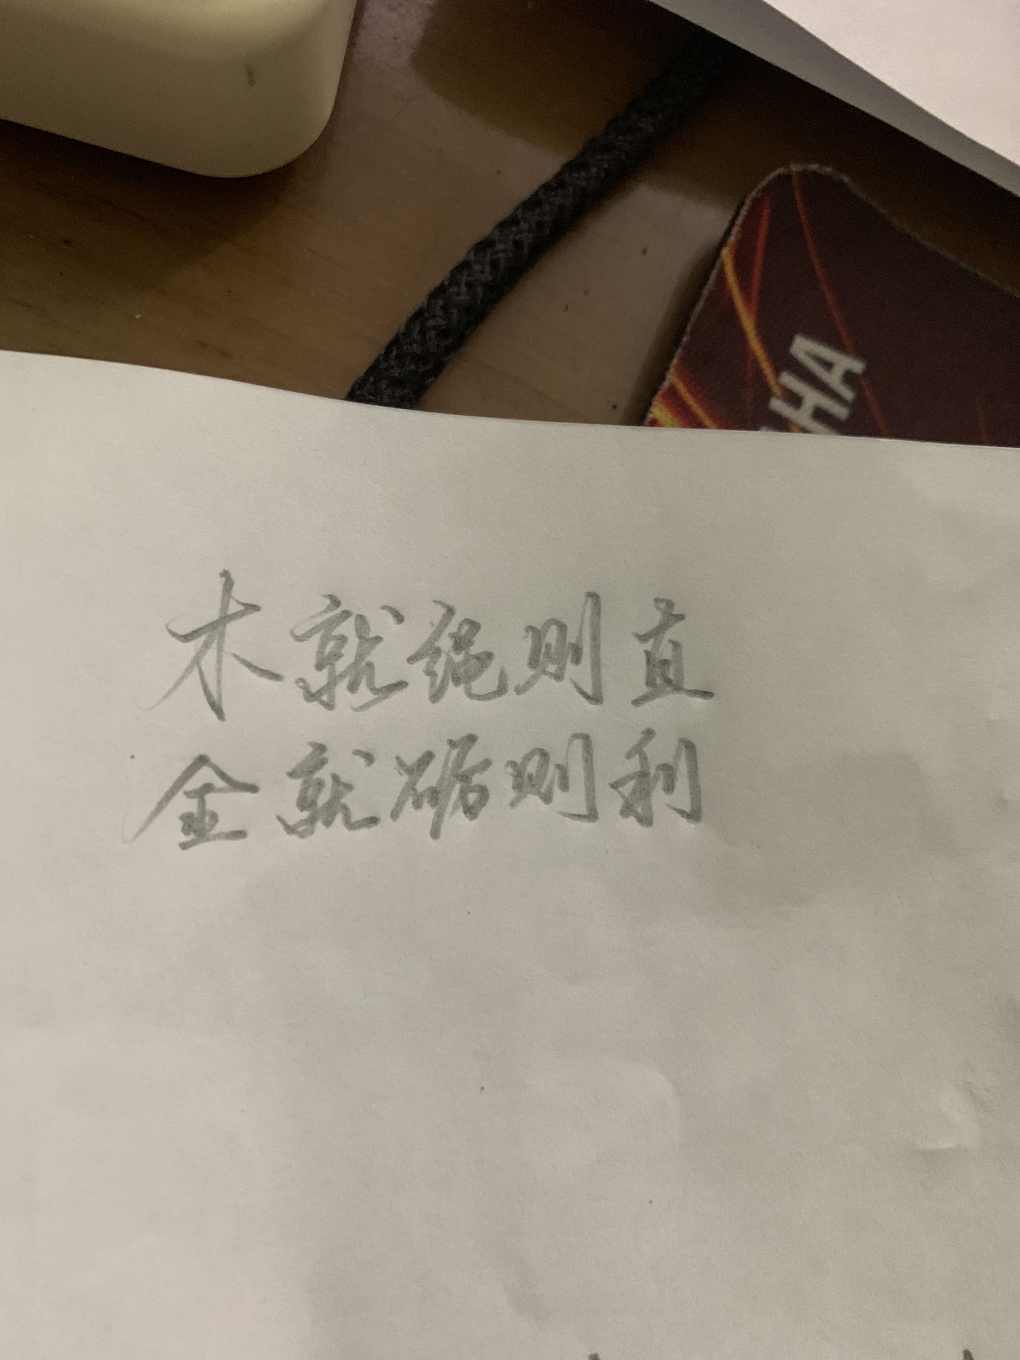 HHA
木就绳则直
金就砺则利